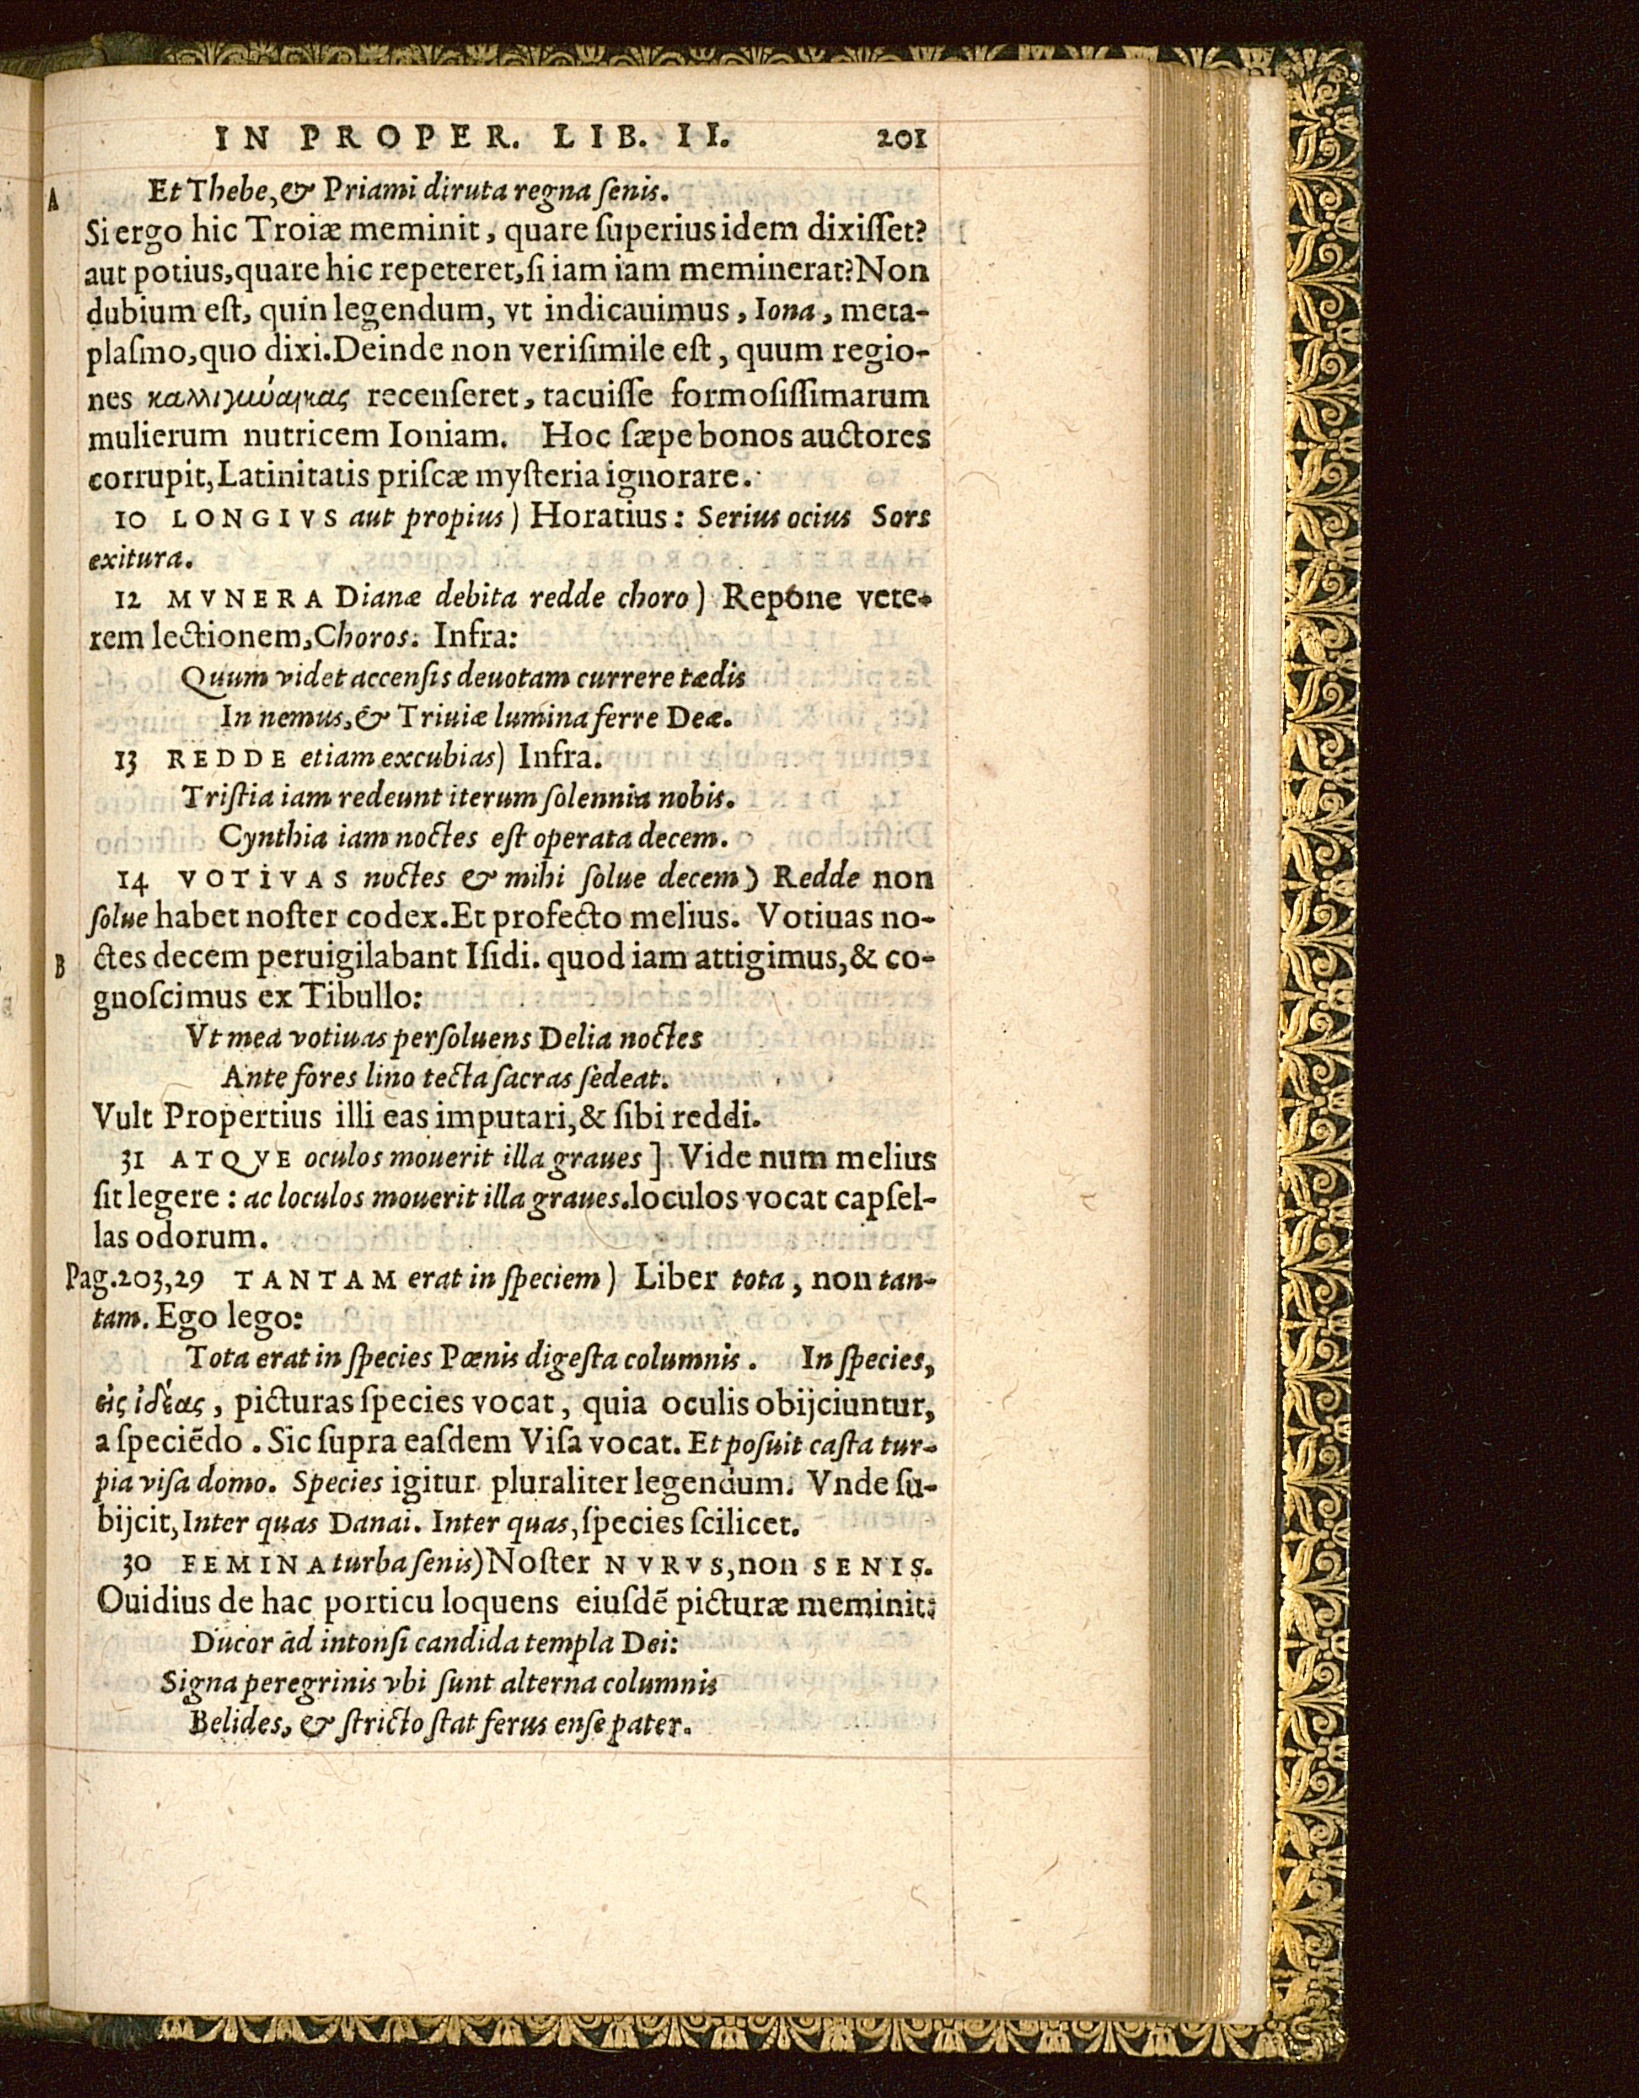 IN PROPER. LIB. II. 201
A Et Thebe, & Priami diruta regna ſenis.
Si ergo hic Troiæ meminit, quare ſuperius idem dixiſſet?
aut potius, quare hic repeteret, ſi iam iam meminerat? Non
dubium eſt, quin legendum, vt indicauimus, Iona, meta-
plaſmo, quo dixi. Deinde non veriſimile eſt, quum regio-
nes καλλιγύναικας recenſeret, tacuiſſe formoſiſſimarum
mulierum nutricem Ioniam. Hoc ſæpe bonos auctores
corrupit, Latinitatis priſcæ myſteria ignorare.
10 LONGIVS aut propius) Horatius: Serius ocius Sors
exitura.
12 MVNERA Dianæ debita redde choro) Repone vete-
rem lectionem, Choros. Infra:
Quum videt accenſis deuotam currere tædis
In nemus, & Triuiæ lumina ferre Deæ.
13 REDDE etiam excubias) Infra.
Triſtia iam redeunt iterum ſolennia nobis.
Cynthia iam noctes eſt operata decem.
14 VOTIVAS noctes & mihi ſolue decem) Redde non
ſolue habet noſter codex. Et profecto melius. Votiuas no-
B ctes decem peruigilabant Iſidi. quod iam attigimus, & co-
gnoſcimus ex Tibullo:
Vt mea votiuas perſoluens Delia noctes
Ante fores lino tecta ſacras ſedeat.
Vult Propertius illi eas imputari, & ſibi reddi.
31 ATQVE oculos mouerit illa graues] Vide num melius
ſit legere: ac loculos mouerit illa graues. loculos vocat capſel-
las odorum.
Pag. 203,29 TANTAM erat in ſpeciem) Liber tota, non tan-
tam. Ego lego:
Tota erat in ſpecies Pœnis digeſta columnis. In ſpecies,
εἰς ἰδέας, picturas ſpecies vocat, quia oculis obijciuntur,
a ſpeciẽdo. Sic ſupra eaſdem Viſa vocat. Et poſuit caſta tur-
pia viſa domo. Species igitur pluraliter legendum. Vnde ſu-
bijcit, Inter quas Danai. Inter quas, ſpecies ſcilicet.
30 FEMINA turba ſenis) Noſter NVRVS, non SENIS.
Ouidius de hac porticu loquens eiuſdẽ picturæ meminit:
Ducor ad intonſi candida templa Dei:
Signa peregrinis vbi ſunt alterna columnis
Belides, & ſtricto ſtat ferus enſe pater.